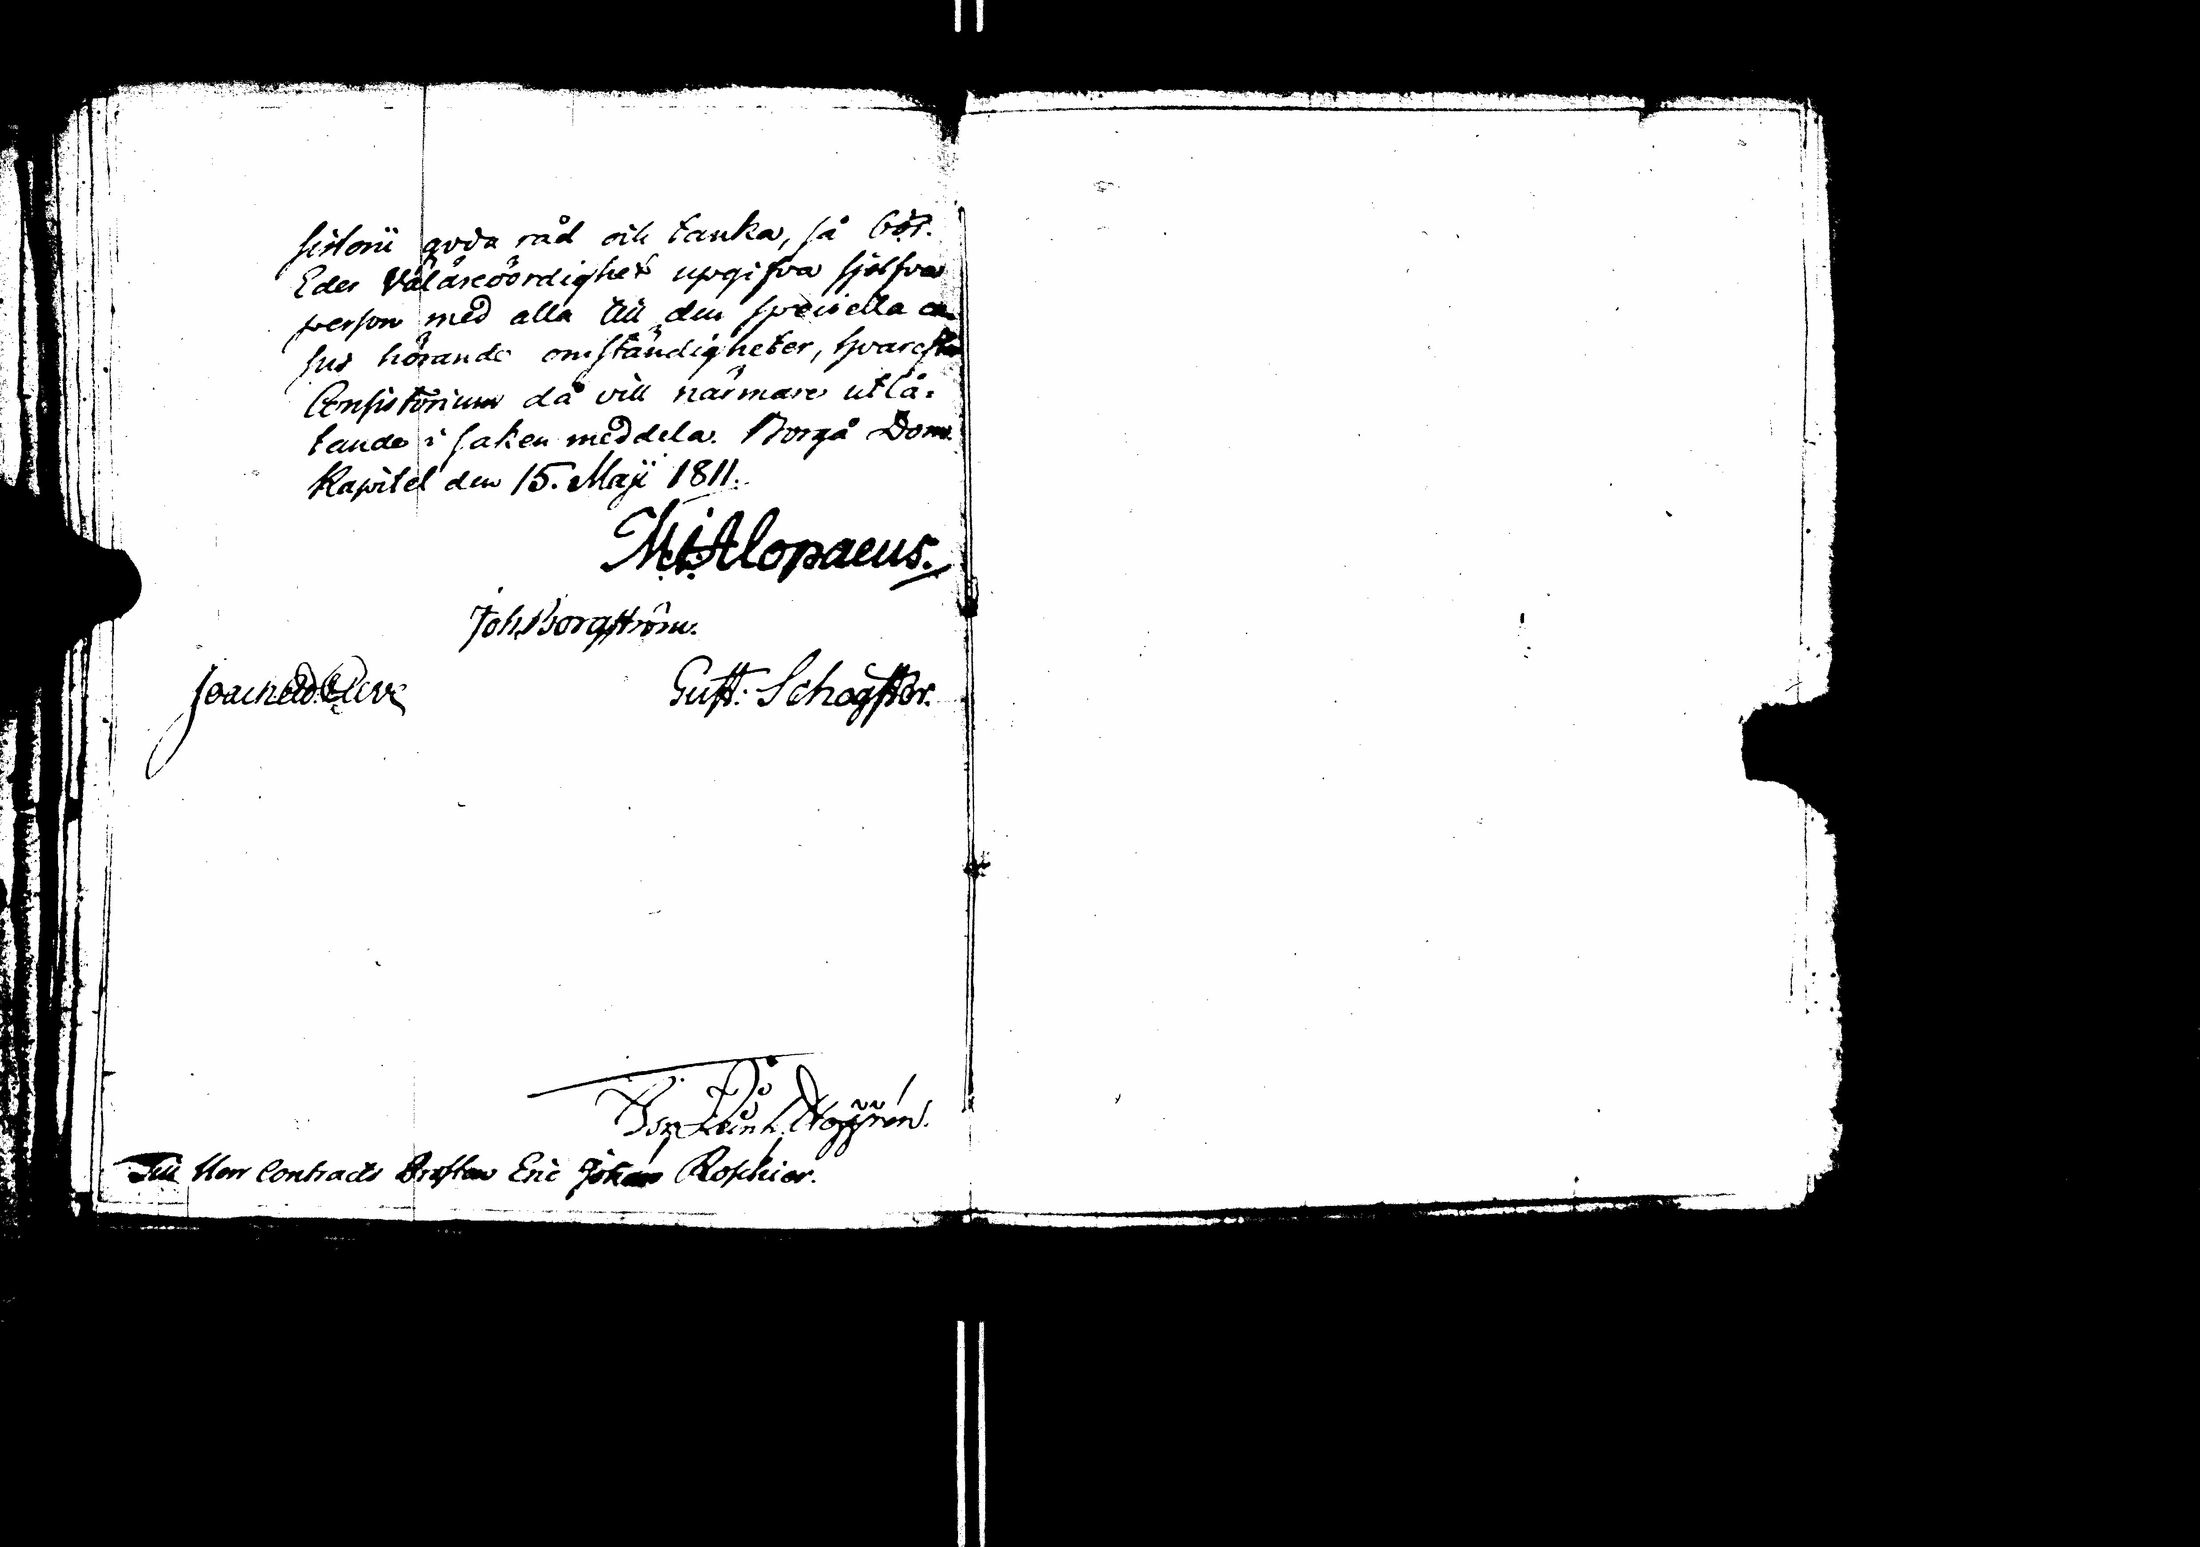 sistorii goda råd och tanka, så bör
Eder Välärevördighet upgifva sjelfva
person med alla till den speciella ca-
sus hörande omständigheter, hvarefter
Consistorium då vill närmare utlå-
tande i saken meddela. Borgå Dom
Kapitel den 15. Maji 1811.
Alopaeus.
Joh. Borgström.
Gust. Schogster.
Till Herr Contracts Prosten Eric Johan Roschier.